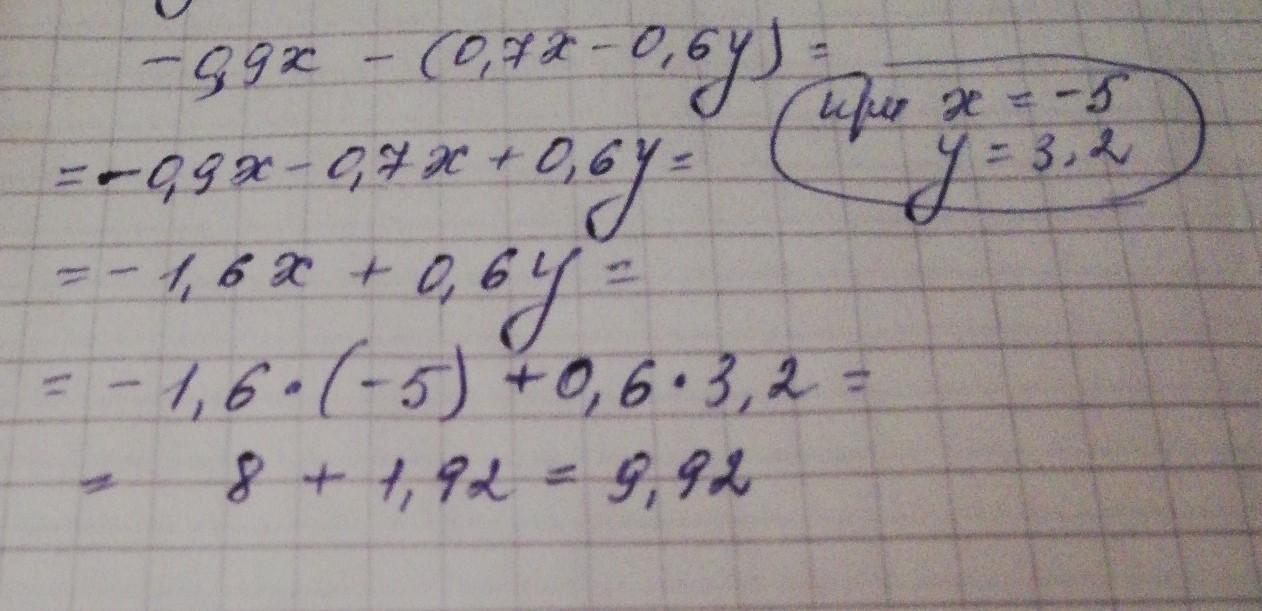 -0,9x - (0,7x - 0,6y) =
при x = -5
y = 3,2
= -0,9x - 0,7x + 0,6y =
= - 1,6x + 0,6y =
= - 1,6 · (-5) + 0,6 · 3,2 =
= 8 + 1,92 = 9,92